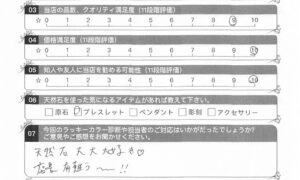 03 当店の品数、クオリティ満足度 (11段階評価)
☆ 0 1 2 3 4 5 6 7 8 9 10
04 価格満足度 (11段階評価)
☆ 0 1 2 3 4 5 6 7 8 9 10
05 知人や友人に当店を勧める可能性 (11段階評価)
☆ 0 1 2 3 4 5 6 7 8 9 10
06 天然石を使った気になるアイテムがあれば教えて下さい。
□原石 □ブレスレット □ペンダント □彫刻 □アクセサリー
07 今回のラッキーカラー診断や担当者のご対応はいかがだったでしょうか?
ご意見やご感想をお聞かせください。
天然石 大大 好き♡
店長 有難う 〜 !!